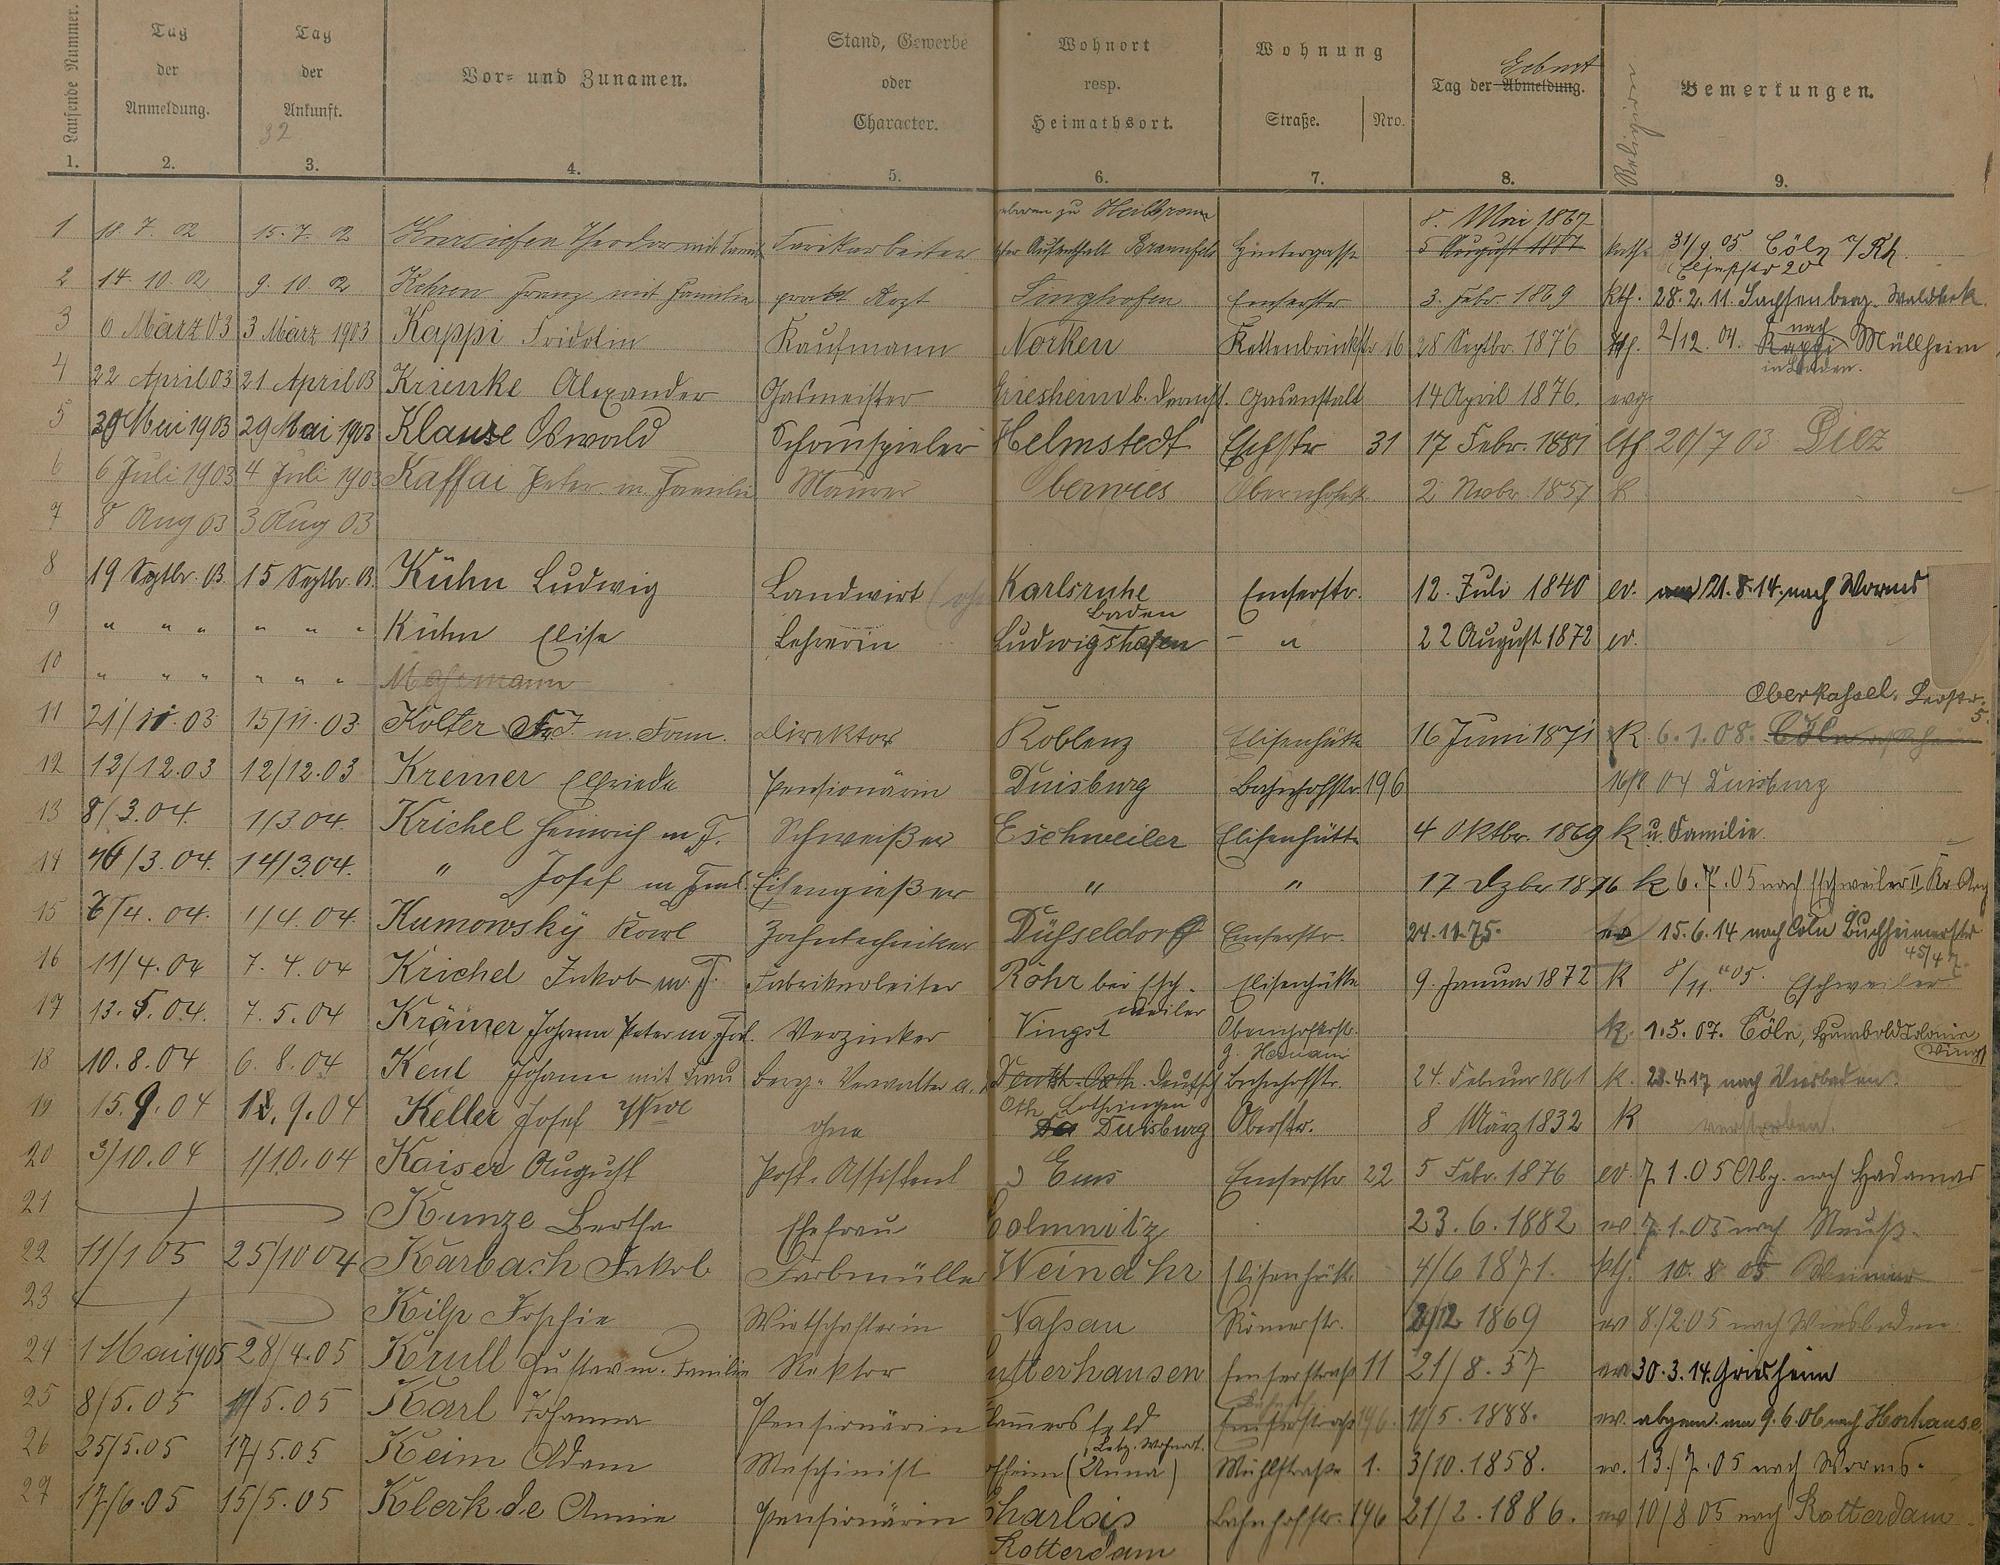 Laufende Nummer. Tag der Anmeldung. Tag der Ankunft. Vor= und Zunamen. Stand, Gewerbe oder Character. Wohnort resp. Heimathsort. Wohnung Straße. Nro. Tag der Abmeldung. Geburt Religion Bemerkungen.
32
1. 2. 3. 4. 5. 6. 7. 8. 9.
geboren zu Heilbronn 8. Mai 1867
1 18. 7. 02 15. 7. 02 Theodor mit Fam. Aufenthalt Braunfels Hintergasse 5 August kath. 05 Cöln a/Rh.
2 14. 10. 02 9. 10. 02 Kehren Franz mit Familie prakt Arzt Singhofen Emserstr 3. Febr. 1869 kth. 28. 2. 11. Sachsenberg-Waldeck.
3 6 März 03 3 März 1903 Kappi Fridolin Kaufmann Norken Kettenbrückstr 16 28 Septbr. 1876 kth. 2/12. 04. Kappi nach Müllheim
in Baden.
4 22 April 03 21 April 03 Krienke Alexander Gasmeister Griesheim b. Darmst. Gasanstalt 14 April 1876. evg
5 29 Mai 1903 29 Mai 1903 Klause Oswald Schauspieler Helmstedt Eschstr 31 17 Febr. 1881 kth 20/7 03 Diez
6 6 Juli 1903 4 Juli 1903 Kaffai Peter m. Familie Maurer berwies Obernhoferstr 2 Novbr. 1857 k
7 8 Aug 03 3 Aug 03
8 19 Septbr. 03. 15 Septbr. 03. Kühn Ludwig Landwirt Karlsruhe Emserstr. 12. Juli 1840 ev. am 21. 8. 14. nach Worms
Baden
9 " " " " " " Kühn Elise Lehrerin Ludwigshafen - " 22 August 1872 ev.
10 " " " " " "
Oberkassel. 5.
11 21/11. 03 15/11. 03 Kolter Fr. J. m. Fam. Direktor Koblenz Elisenhütte 16 Juni 1871 K. 6. 1. 08. Cöln
12 12/12. 03 12/12. 03 Kremer Elfriede Pensionärin Duisburg Bahnhofstr 196 04 Duisburg
13 8/3. 04. 1/3 04. Krichel Heinrich m. F. Schweißer Eschweiler Elisenhütte 4 Oktbr. 1869 k u. Familie.
14 /3. 04. 14/3 04. " Josef m Faml. Eisengießer " " 17 Dzbr 1876 k 6. 7. 05 nach Eschweiler II
15 /4. 04. 1/4. 04. Kumowsky Karl Zahntechniker Düsseldorf Emserstr. 24. 11. 75. ev 15. 6. 14 nach Cöln Buchheimerstr
45/47.
16 11/4. 04 7. 4. 04 Krichel Jakob m. F. Fabrikarbeiter Röhr bei Esch- Elisenhütte 9. Januar 1872 K 8/11. 05. Eschweiler
weiler
17 13. 5. 04. 7. 5. 04 Krämer Johann Peter m. Fal. Verzinker Vingst Obernhoferstr. k. 1. 5. 07. Cöln, Humboldtcolonie
Vingst
18 10. 8. 04 6. 8. 04 Keul Johann mit Frau Berg-Verwalter a. Deutsch-Oth. Deutsch Bahnhofstr. 24. Februar 1861 k. 4. 17 nach Wiesbaden.
Oth Lothringen
19 15. 9. 04 9. 04 Keller Josef Wwe ohne Duisburg Oberstr. 8 März 1832 K verstorben.
20 3/10. 04 1/10. 04 Kaiser August Post-Assistent Ems Emserstr 22 5 Febr. 1876 ev. 7 1. 05 Abg. nach Hadamar
21 Kunze Bertha Ehefrau Colmnitz 23. 6. 1882 ev 7. 1. 05 nach Neuß.
22 11/1 05 25/10 04 Karbach Jakob Farbmüller Weinähr Elisenhütte 4/6 1871. kth. 10. 8 05
23 Kilp Sophie Wirtschafterin Nassau Römerstr. 2/12 1869 ev 8./2 05 nach Wiesbaden
24 1 Mai 1905 28/4. 05 Krull Gustav m. Familie Rektor utterhausen Emserstraße 11 21/8. 57 ev 30. 3. 14. Griesheim
25 8/5. 05 1/5. 05 Karl Johanna Pensionärin Lammersfeld Emserstraße 196. 11/5. 1888. ev. abgem. am 9. 6. 06 nach Horhausen
Letz. Wohnort.
26 25/5. 05 17/5. 05 Keim Adam Maschinist (Unna) Mühlstraße 1. 3/10. 1858. ev. 13. /7. 05 nach Worms.
27 17/6. 05 15/5. 05 Klerk de Annie Pensionärin Charlois Bahnhofstr. 196 21/2. 1886. ev 10/8 05 nach Rotterdam
Rotterdam